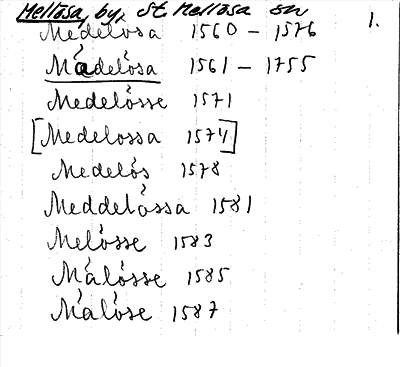 Mellösa, by, St. Mellösa sn 1.
Medelösa 1560 - 1576
Mädelösa 1561 - 1755
Medelösse 1571
[Medelossa 1574]
Medelös 1578
Meddelössa 1581
Melösse 1583
Mälösse 1585
Mälöse 1587